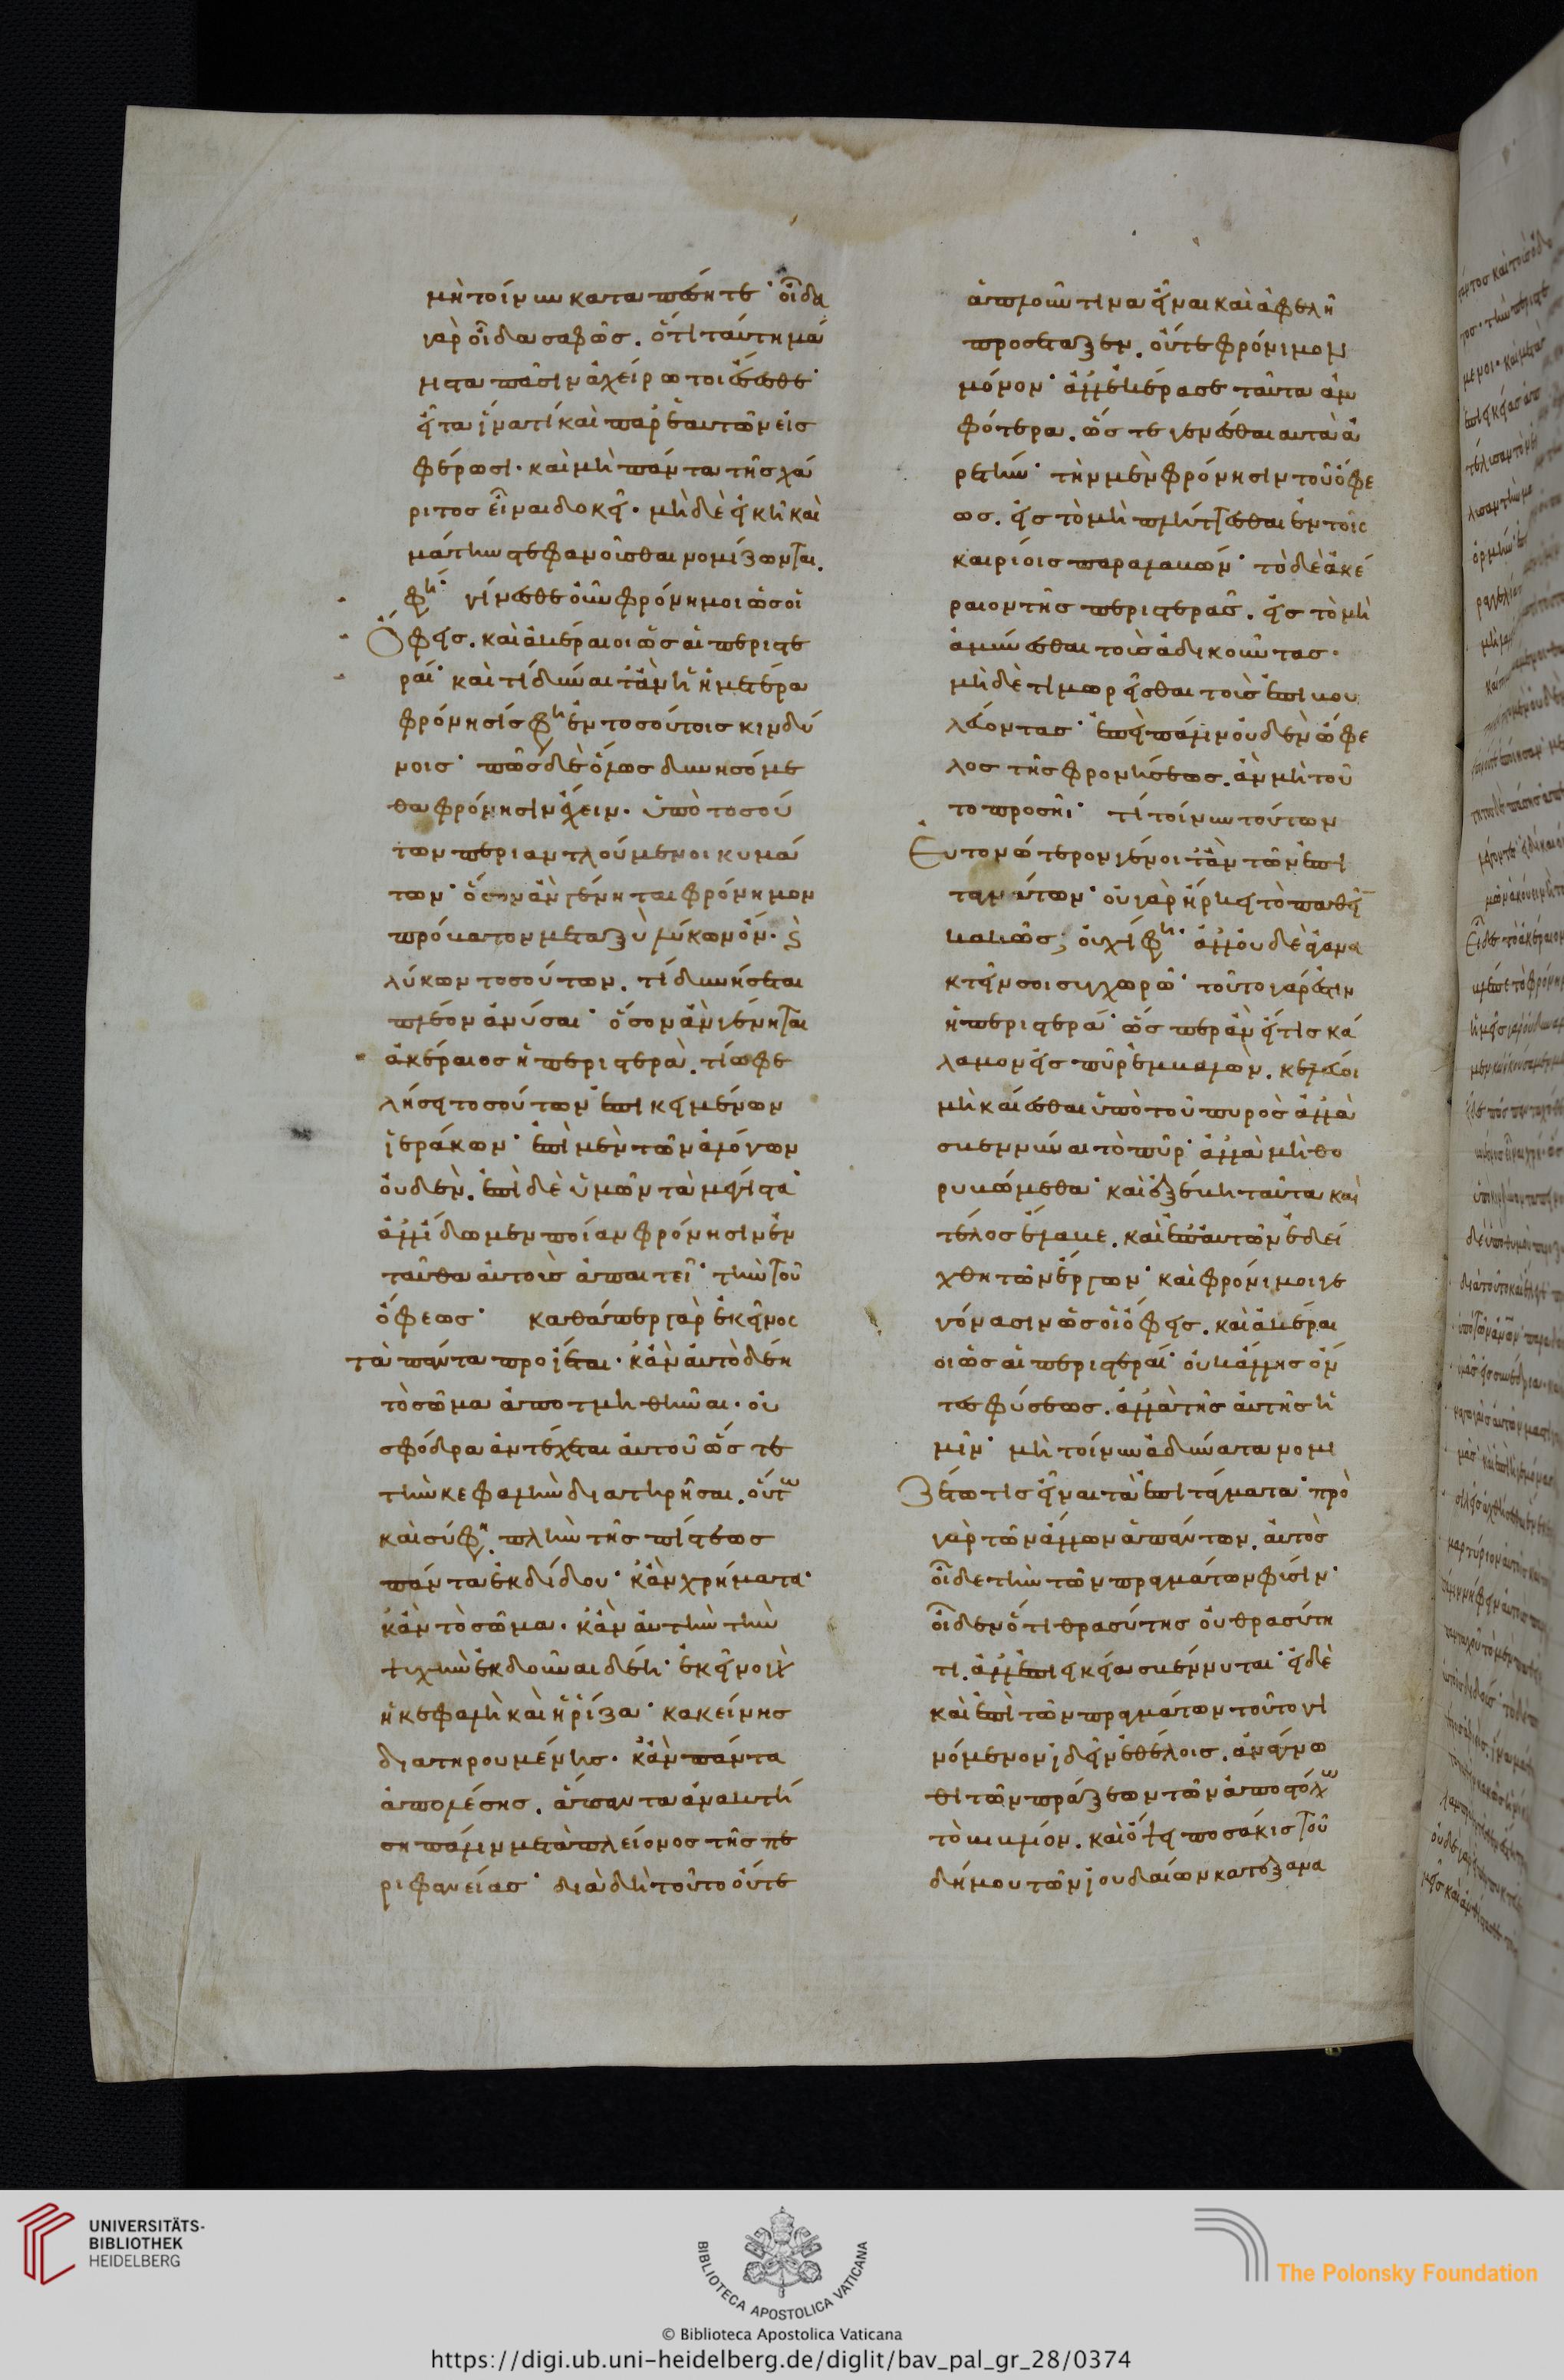 μὴ τοίνυν καταπέσητε· οἶδα
γὰρ οἶδα σαφῶς. ὅτι ταύτη μά
λιστα πᾶσιν ἀχείρωτοι ἔσεσθε·
εἶτα ἵνα τί καὶ παρ' ἑαυτῶν εἰσ
φέρωσι· καὶ μὴ πάντα τῆς χά
ριτος εἶναι δοκῆ· μὴ δὲ εἰκῆ καὶ
μάτην στεφανοῦσθαι νομίζωνται.
φη· γίνεσθε οὖν φρόνημοι ὡς οἱ
Ὄφεις. καὶ ἀκέραιοι ὡς αἱ περιστε
ραί· καὶ τί δύναιτ' ἂν ἡ ἡμετέρα
φρόνησίς φη ἐν τοσούτοις κινδύ
νοις· πῶς δὲ ὅλως δυνησόμε
θα φρόνησιν ἔχειν· ὑπὸ τοσού
των περιαντλούμενοι κυμά
των· ὅσον ἂν γένηται φρόνημον
πρόβατον μεταξὺ λύκων ὄν. ϗ
λύκων τοσούτων. τί δυνήσεται
πλέον ἀνύσαι· ὅσον ἂν γένηται
ἀκέραιος ἡ περιστερὰ. τί ὠφε
λήσει τοσούτων ἐπικειμένων
ἱεράκων· ἐπὶ μὲν τῶν ἀλόγων
οὐδὲν. ἐπὶ δὲ ὑμῶν τὰ μέγιστα·
ἀλλ' ἴδωμεν ποίαν φρόνησιν ἐν
ταῦθα αὐτοὺς ἀπαιτεῖ· τὴν τοῦ
ὄφεως· καθάπερ γὰρ ἐκεῖνος
τὰ πάντα προίεται· κἂν αὐτὸ δέη
τὸ σῶμα ἀποτμηθῆναι· οὐ
σφόδρα ἀντέχεται αὐτοῦ ὥστε
τὴν κεφαλὴν διατηρῆσαι. οὕτω
καὶ σύ φη. πλὴν τῆς πίστεως
πάντα ἐκδίδου· κἂν χρήματα·
κἂν τὸ σῶμα· κἂν αὐτὴν τὴν
ψυχὴν ἐκδοῦναι δέη· ἐκεῖνο γὰρ
ἡ κεφαλὴ καὶ ἡ ῥίζα· κακείνης
διατηρουμένης· κἂν πάντα
ἀπολέσης. ἅπαντα ἀνακτή
ση πάλιν μετὰ πλείονος τῆς πε
ριφανείας· διὰ δὴ τοῦτο οὔτε
ἁπλοῦν τινα εἶναι καὶ ἀφελῆ
προσέταξεν. οὔτε φρόνιμον
μόνον· ἀλλ' ἐκέρασε ταῦτα ἀμ
φότερα. ὥστε γενέσθαι αυτὰ ἀ
ρετὴν· τὴν μὲν φρόνησιν τοῦ ὄφε
ως. εἰς τὸ μὴ πλήττεσθαι ἐν τοῖς
καιρίοις παραλαβών· τὸ δὲ ἀκέ
ραιον τῆς περιστερᾶς. εἰς τὸ μὴ
ἀμύνεσθαι τοὺς ἀδικοῦντας·
μὴ δὲ τιμωρεῖσθαι τοὺς ἐπιβου
λεύοντας· ἐπεὶ πάλιν οὐδὲν ὄφε
λος τῆς φρονήσεως. ἂν μὴ τοῦ
το προσῆ· τί τοίνυν τούτων
Ευτονώτερον γένοιτ' ἂν τῶν ἐπι
ταγμάτων· οὐ γὰρ ἤρκει τὸ παθεῖν
κακῶς; οὐχί φη· ἀλλ' οὐδὲ ἀγανα
κτεῖν σοι συγχωρῶ· τοῦτο γάρ ἐστιν
ἡ περιστερά· ὥσπερ ἂν εἴ τις κά
λαμον εἰς πῦρ ἐμβαλὼν. κελεύοι
μὴ καίεσθαι ὑπὸ τοῦ πυρὸς ἀλλὰ
σβεννύναι τὸ πῦρ· ἀλλὰ μὴ θο
ρυβώμεθα· καὶ ἐξέβη ταῦτα καὶ
τέλος ἔλαβε. καὶ ἐπ' αὐτῶν ἐδεί
χθη τῶν ἔργων· καὶ φρόνιμοι γε
γόνασιν ὡς οἱ ὄφεις. καὶ ἀκέραι
οι ὡς αἱ περιστεραί· οὐκ ἄλλης ὄν
τες φύσεως. ἀλλὰ τῆς αὐτῆς ἡ
μῖν· μὴ τοίνυν ἀδύνατα νομι
Ζέτω τις εἶναι τὰ ἐπιτάγματα· πρὸ
γὰρ τῶν ἄλλων ἁπάντων. αὐτὸς
οἶδε τὴν τῶν πραγμάτων φύσιν·
οἶδεν ὅτι θρασύτης οὐ θρασύτη
τι. ἀλλ' ἐπιεικεία σβέννυται· εἰ δὲ
καὶ ἐπὶ τῶν πραγμάτων τοῦτο γι
νόμενον ἰδεῖν ἐθέλοις. ἀνάγνω
θι τῶν πράξεων τῶν ἀποστόλων
τὸ βιβλίον. καὶ ὄψει ποσάκις τοῦ
δήμου τῶν ἰουδαίων κατεξανα
UNIVERSITÄTS-
BIBLIOTHEK
HEIDELBERG
BIBLIOTECA APOSTOLICA VATICANA
The Polonsky Foundation
© Biblioteca Apostolica Vaticana
https://digi.ub.uni-heidelberg.de/diglit/bav_pal_gr_28/0374